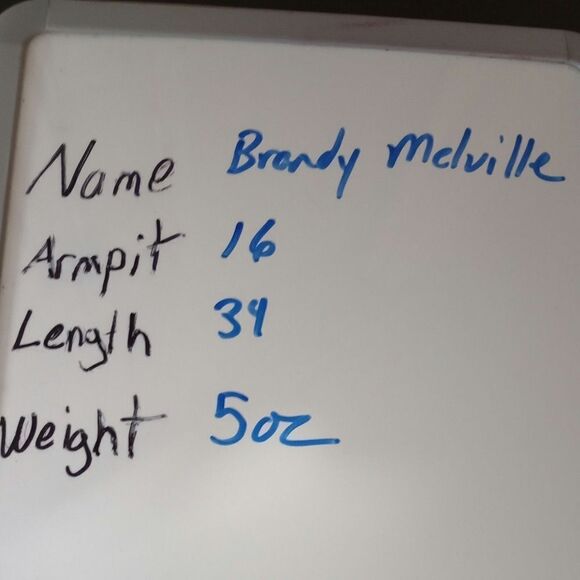 Name Brandy Melville
Armpit 16
Length 34
Weight 5oz